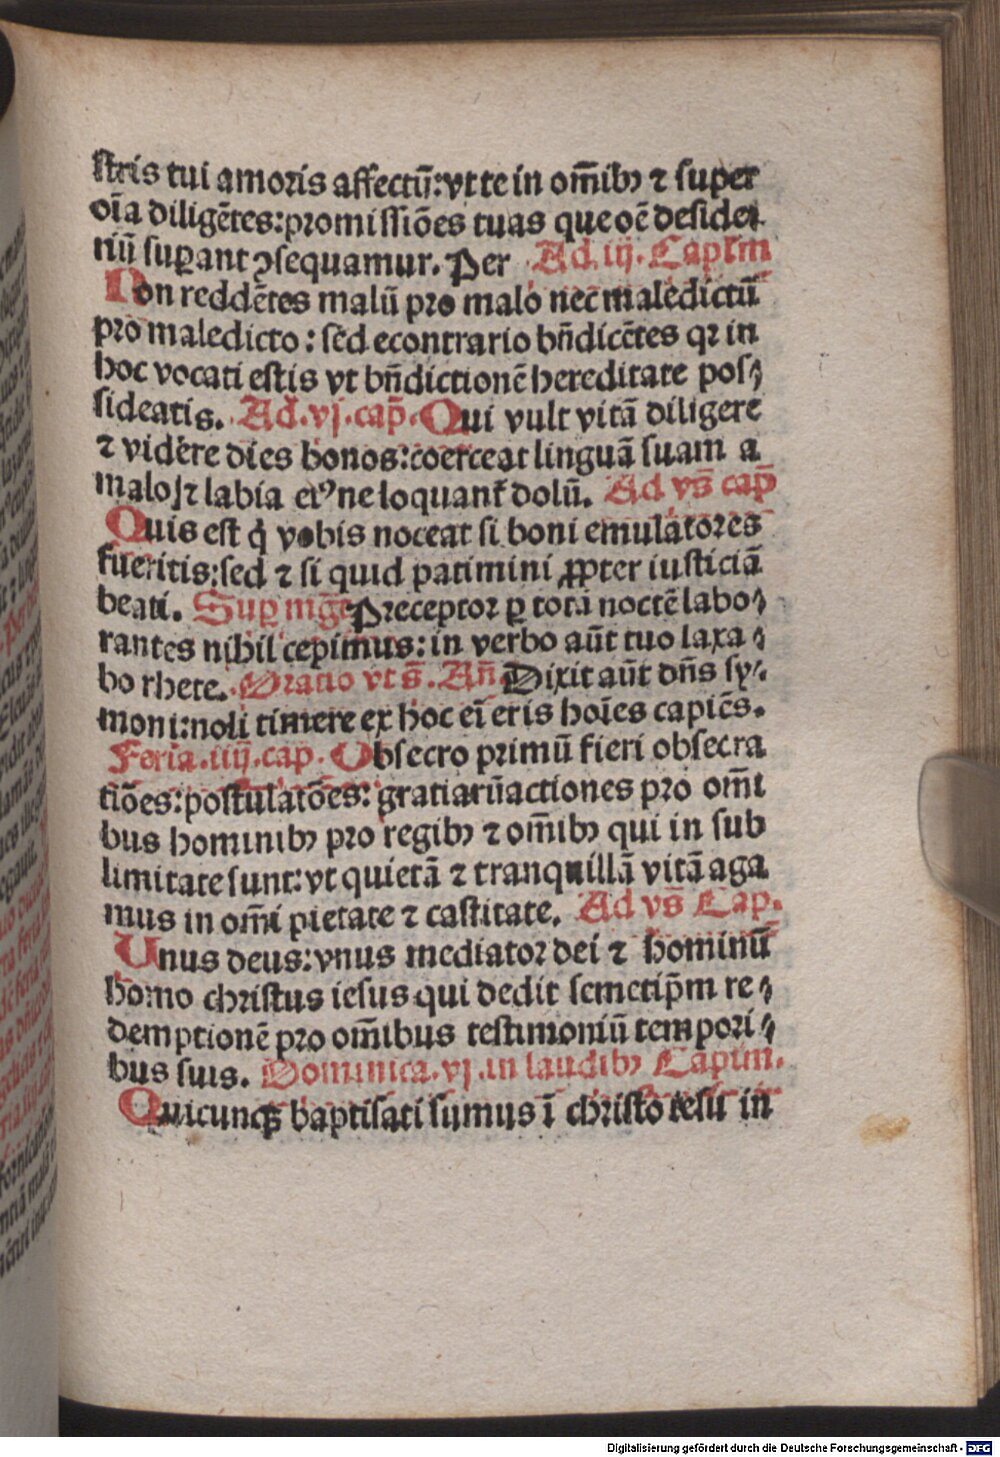 ſtris tui amoris affectū: vt te in om̄ibꝫ ⁊ ſuper
oīa diligētes: promiſſiōes tuas que oē deſide⸗
riū ſuꝑant ꝯſequamur. Per Ad. iij. Capłm
Non reddētes malū pro malo nec maledictū
pro maledicto: ſed econtrario bn̄dicētes qꝛ in
hoc vocati eſtis vt bn̄dictionē hereditate poſ⸗
ſideatis. Ad. vj. cap̄. Qui vult vitā diligere
⁊ videre dies bonos: coerceat linguā ſuam a
malo ⁊ labia eiꝰ ne loquant᷑ dolū. Ad vs̄ cap̄
Quis eſt q̇ vobis noceat ſi boni emulatores
fueritis: ſed ⁊ ſi quid patimini ꝓpter iuſticiā
beati. Suꝑ mḡt Preceptor ꝑ totā noctē labo⸗
rantes nihil cepimus: in verbo aūt tuo laxa⸗
bo rhete. Oratio vt s̄. An̄ Dixit aūt dn̄s ſy⸗
moni: noli timere ex hoc eī eris hoīes capiēs.
Feria. iiij. cap. Obſecro primū fieri obſecra
tiōes: poſtulatōes: gratiarū actiones pro om̄i
bus hominibꝫ pro regibꝫ ⁊ om̄ibꝫ qui in ſub
limitate ſunt: vt quietā ⁊ tranquillā vitā aga
mus in om̄i pietate ⁊ caſtitate. Ad vs̄ Cap.
Unus deus: vnus mediator dei ⁊ hominū
homo chriſtus ieſus qui dedit ſemetip̄m re⸗
demptionē pro om̄ibus teſtimoniū tempori⸗
bus ſuis. Dominica. vj. in laudibꝫ Capłm.
Quicunqꝫ baptiſati ſumus ī chriſto ieſu in
Digitalisierung gefördert durch die Deutsche Forschungsgemeinschaft - DFG